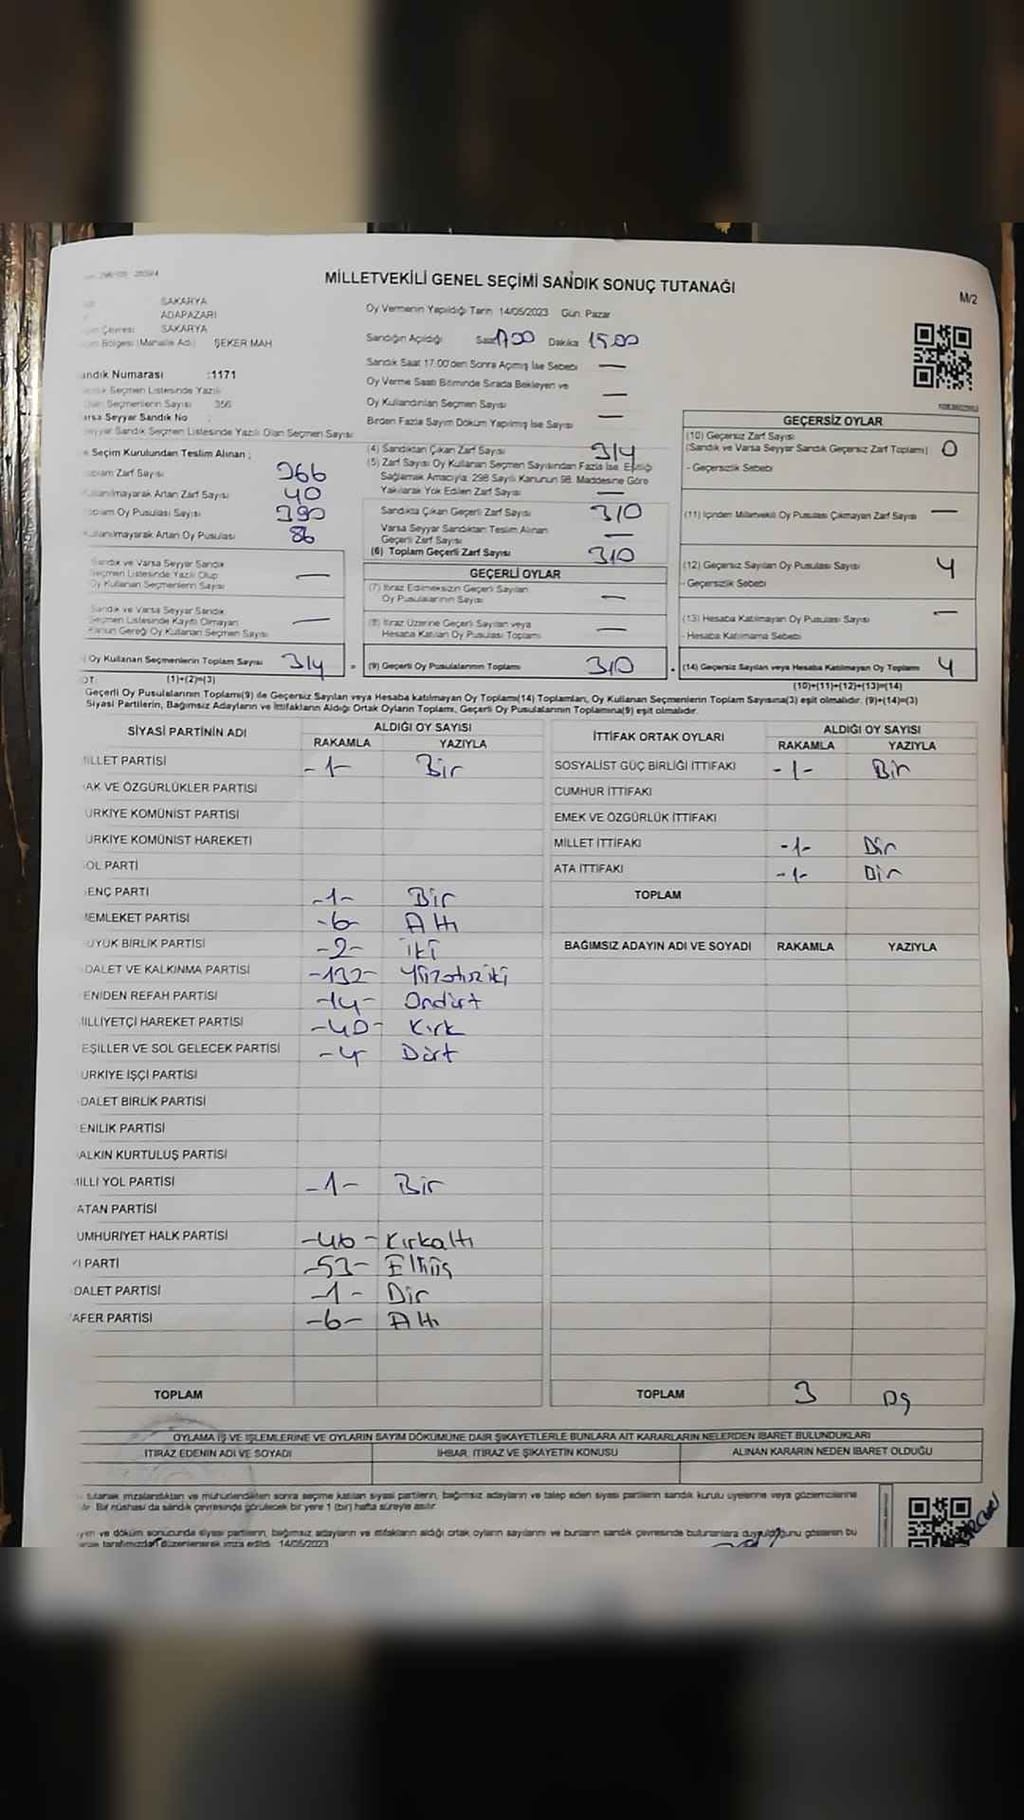 MİLLETVEKİLİ GENEL SEÇİMİ SANDIK SONUÇ TUTANAĞI
M/2
SAKARYA
ADAPAZARI
Çevresi SAKARYA
Bölgesi (Mahalle Adı) ŞEKER MAH
Oy Vermenin Yapıldığı Tarih 14/05/2023 Gün. Pazar
Sandığın Açıldığı Saat 17.00 Dakika
Sandık Saat 17.00'den Sonra Açılmış İse Sebebi —
Oy Verme Saati Bitiminde Sırada Bekleyen ve
Oy Kullandırılan Seçmen Sayısı —
Birden Fazla Sayım Döküm Yapılmış İse Sayısı —
andık Numarası :1171
Seçmen Listesinde Yazılı
Olan Seçmenlerin Sayısı 356
arsa Seyyar Sandık No
eyyar Sandık Seçmen Listesinde Yazılı Olan Seçmen Sayısı
e Seçim Kurulundan Teslim Alınan :
oplam Zarf Sayısı 366
ullanılmayarak Artan Zarf Sayısı 40
oplam Oy Pusulası Sayısı 390
ullanılmayarak Artan Oy Pusulası 86
Sandık ve Varsa Seyyar Sandık
Seçmen Listesinde Yazılı Olup
Oy Kullanan Seçmenlerin Sayısı —
Sandık ve Varsa Seyyar Sandık
Seçmen Listesinde Kayıtlı Olmayan
Kanun Gereği Oy Kullanan Seçmen Sayısı —
Oy Kullanan Seçmenlerin Toplam Sayısı 314
(1)+(2)=(3)
(4) Sandıktan Çıkan Zarf Sayısı 314
(5) Zarf Sayısı Oy Kullanan Seçmen Sayısından Fazla İse, Eşitliği
Sağlamak Amacıyla, 298 Sayılı Kanunun 98. Maddesine Göre
Yakılarak Yok Edilen Zarf Sayısı —
Sandıkta Çıkan Geçerli Zarf Sayısı 310
Varsa Seyyar Sandıktan Teslim Alınan
Geçerli Zarf Sayısı —
(6) Toplam Geçerli Zarf Sayısı 310
GEÇERLİ OYLAR
(7) İtiraz Edilmeksizin Geçerli Sayılan
Oy Pusulalarının Sayısı —
(8) İtiraz Üzerine Geçerli Sayılan veya
Hesaba Katılan Oy Pusulası Toplamı —
(9) Geçerli Oy Pusulalarının Toplamı 310
GEÇERSİZ OYLAR
(10) Geçersiz Zarf Sayısı
(Sandık ve Varsa Seyyar Sandık Geçersiz Zarf Toplamı) 0
- Geçersizlik Sebebi
(11) İçinden Milletvekili Oy Pusulası Çıkmayan Zarf Sayısı —
(12) Geçersiz Sayılan Oy Pusulası Sayısı 4
- Geçersizlik Sebebi
(13) Hesaba Katılmayan Oy Pusulası Sayısı —
- Hesaba Katılmama Sebebi
(14) Geçersiz Sayılan veya Hesaba Katılmayan Oy Toplamı 4
(10)+(11)+(12)+(13)=(14)
OT:
Geçerli Oy Pusulalarının Toplamı(9) ile Geçersiz Sayılan veya Hesaba katılmayan Oy Toplamı(14) Toplamları, Oy Kullanan Seçmenlerin Toplam Sayısına(3) eşit olmalıdır. (9)+(14)=(3)
Siyasi Partilerin, Bağımsız Adayların ve İttifakların Aldığı Ortak Oyların Toplamı, Geçerli Oy Pusulalarının Toplamına(9) eşit olmalıdır.
SİYASİ PARTİNİN ADI ALDIĞI OY SAYISI
RAKAMLA YAZIYLA
MİLLET PARTİSİ -1- Bir
AK VE ÖZGÜRLÜKLER PARTİSİ
ÜRKİYE KOMÜNİST PARTİSİ
ÜRKİYE KOMÜNİST HAREKETİ
OL PARTİ
ENÇ PARTİ -1- Bir
MEMLEKET PARTİSİ -6- Altı
ÜYÜK BİRLİK PARTİSİ -2- iki
DALET VE KALKINMA PARTİSİ -132- Yüzotuziki
ENİDEN REFAH PARTİSİ -14- Ondört
MİLLİYETÇİ HAREKET PARTİSİ -40- Kırk
EŞİLLER VE SOL GELECEK PARTİSİ -4- Dört
ÜRKİYE İŞÇİ PARTİSİ
DALET BİRLİK PARTİSİ
ENİLİK PARTİSİ
ALKIN KURTULUŞ PARTİSİ
MİLLİ YOL PARTİSİ -1- Bir
ATAN PARTİSİ
UMHURİYET HALK PARTİSİ -46- Kırkaltı
Yİ PARTİ -53- Elliüç
DALET PARTİSİ -1- Bir
AFER PARTİSİ -6- Altı
TOPLAM
İTTİFAK ORTAK OYLARI ALDIĞI OY SAYISI
RAKAMLA YAZIYLA
SOSYALİST GÜÇ BİRLİĞİ İTTİFAKI -1- Bir
CUMHUR İTTİFAKI
EMEK VE ÖZGÜRLÜK İTTİFAKI
MİLLET İTTİFAKI -1- Bir
ATA İTTİFAKI -1- Bir
TOPLAM
BAĞIMSIZ ADAYIN ADI VE SOYADI RAKAMLA YAZIYLA
TOPLAM 3 Üç
OYLAMA İŞ VE İŞLEMLERİNE VE OYLARIN SAYIM DÖKÜMÜNE DAİR ŞİKAYETLERLE BUNLARA AİT KARARLARIN NELERDEN İBARET BULUNDUKLARI
İTİRAZ EDENİN ADI VE SOYADI İHBAR, İTİRAZ VE ŞİKAYETİN KONUSU ALINAN KARARIN NEDEN İBARET OLDUĞU
tutanak imzalandıktan ve mühürlendikten sonra seçime katılan siyasi partilerin, bağımsız adayların ve talep eden siyasi partilerin sandık kurulu üyelerine veya gözlemcilerine
Bir nüshası da sandık çevresinde görülecek bir yere 1 (bir) hafta süreyle asılır.
ve döküm sonucunda siyasi partilerin, bağımsız adayların ve ittifakların aldığı ortak oyların sayılarını ve bunların sandık çevresinde bulunanlara duyurulduğunu gösteren bu
tarafımızdan düzenlenerek imza edildi. 14/05/2023